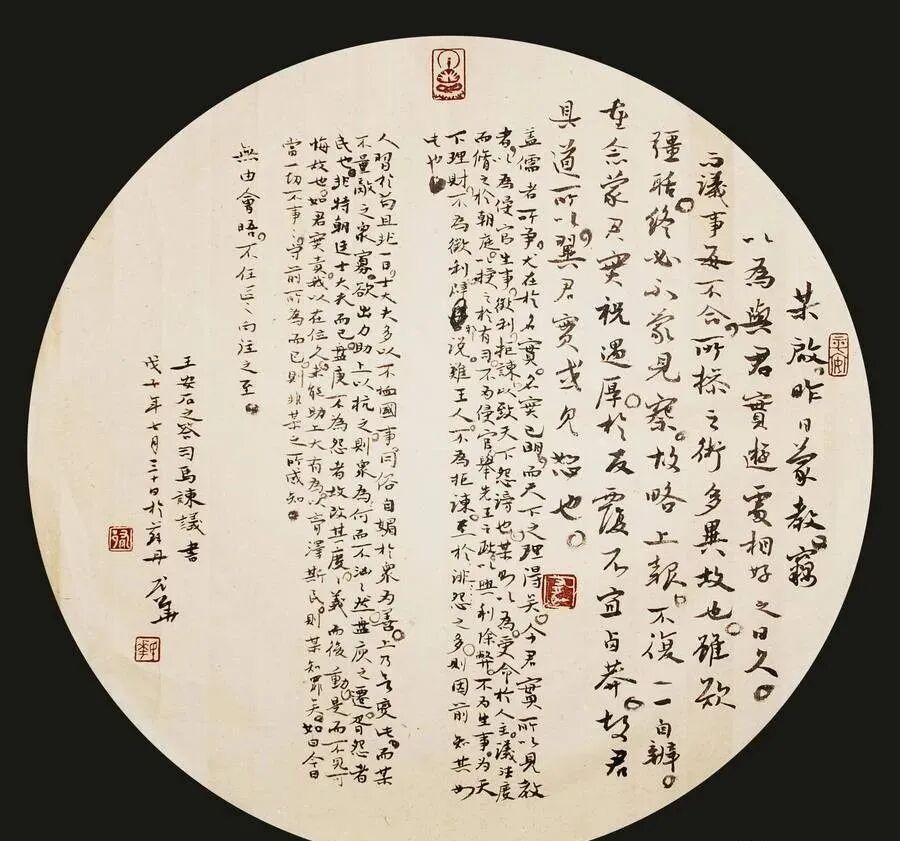 某啟。昨日蒙教。竊
以為與君實遊處相好之日久。
而議事每不合，所操之術多異故也。雖欲
彊聒。終必不蒙見察。故略上報。不復一一自辨。
重念蒙君實視遇厚。於反覆不宜鹵莽。故君
具道所以。冀君實或見恕也。
蓋儒者所爭。尤在於名實。名實已明。而天下之理得矣。今君實所以見教
者。以為侵官生事。徵利拒諫。以致天下怨謗也。某則以為。受命於人主。議法度
而脩之於朝庭。授之於有司。不為侵官。舉先王之政。以興利除弊。不為生事。為天
下理財。不為徵利。闢邪說。難壬人。不為拒諫。至於誹怨之多。則固前知其如
此也。
人習於苟且非一日。士大夫多以不恤國事。同俗自媚於眾為善。上乃欲變此。而某
不量敵之眾寡。欲出力助上以抗之。則眾為何而不洶洶然。盤庚之遷。胥怨者
民也。非特朝廷士大夫而已。盤庚不為怨者故改其度。度義而後動。是而不見可
悔故也。如君實責我以在位久。未能助上大有為。以膏澤斯民。則某知罪矣。如曰今日
當一切不事事。守前所為而已。則非某之所敢知。
無由會晤。不任區區向往之至。
王安石之答司馬諫議書
戊子年七月三十日於丹